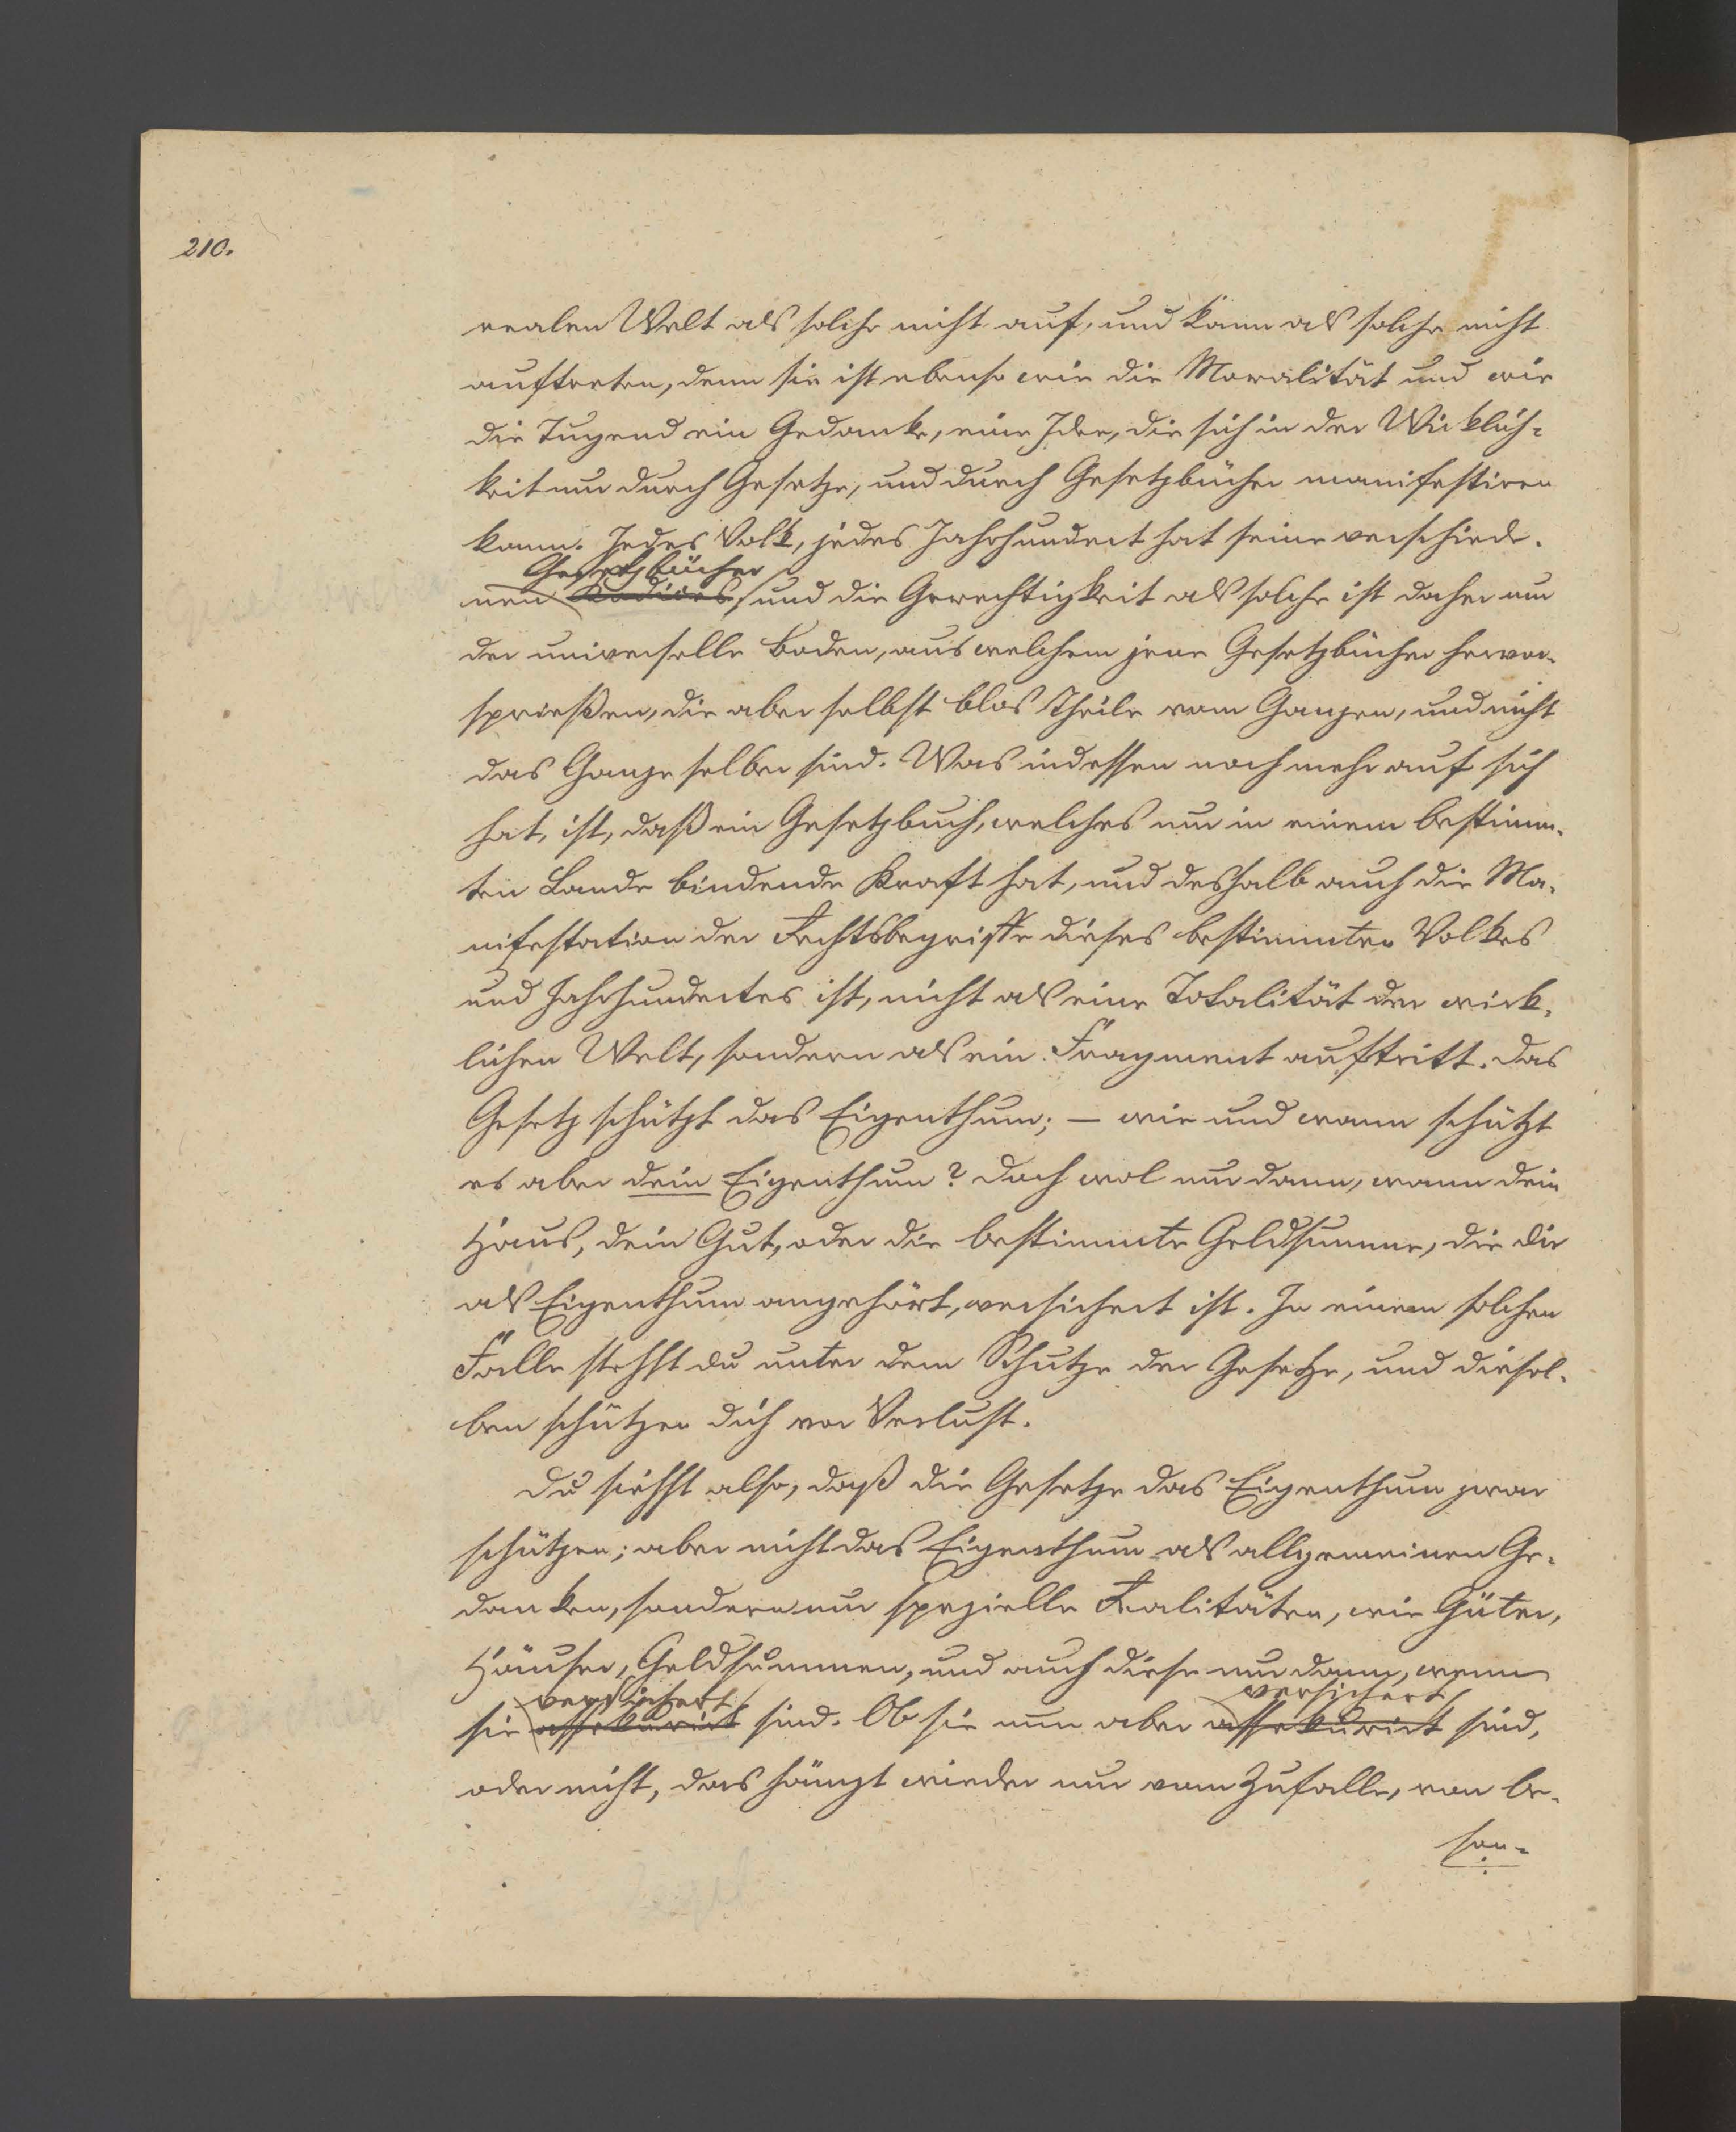 210.
realen Welt als solche nicht auf, und kann als solche nicht
auftreten, denn sie ist ebenso wie die Moralität und wie
die Tugend ein Gedanke, eine Idee, die sich in der Wirklich-
keit nur durch Gesetze, und durch Gesetzbücher manifestiren
kann. Jedes Volk, jedes Jahrhundert hat seine verschiede-
Gesetzbücher
nen Codices, und die Gerechtigkeit als solche ist daher nur
der universelle Boden, aus welchem jene Gesetzbücher hervor-
sprießen, die aber selbst blos Theile vom Ganzen, und nicht
das Ganze selber sind. Was indessen noch mehr auf sich
hat, ist, daß ein Gesetzbuch, welches nur in einem bestimm-
ten Lande bindende Kraft hat, und deshalb auch die Ma-
nifestation der Rechtsbegriffe dieses bestimmten Volkes
und Jahrhundertes ist, nicht als eine Totalität der wirk-
lichen Welt, sondern als ein Fragment auftritt. Das
Gesetz schützt das Eigenthum; – wie und wann schützt
es aber dein Eigenthum? Doch wol nur dann, wann dein
Haus, dein Gut, oder die bestimmte Geldsumme, die dir
als Eigenthum angehört, versichert ist. In einem solchen
Falle stehst du unter dem Schutze der Gesetze, und diesel-
ben schützen dich vor Verlust.
Du siehst also, daß die Gesetze das Eigenthum zwar
schützen; aber nicht das Eigenthum als allgemeinen Ge-
danken, sondern nur spezielle Realitäten, wie Güter,
Häuser, Geldsummen, und auch diese nur dann, wenn
versichert versichert
sie assekurirt sind. Ob sie nun aber assekurirt sind,
oder nicht, das hängt wieder nur vom Zufalle, von be-
son-